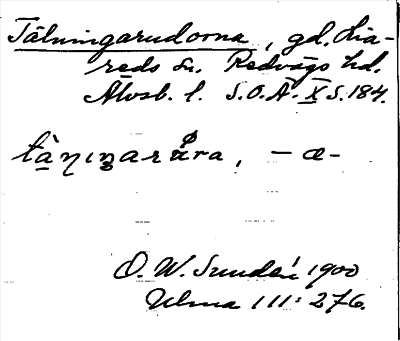 Tälningarudorna, gd. Lia-
reds sn. Redvägs hd.
Älvsb. l. S.O.Ä. X S. 184.
, – æ –
O. W. Sundén 1900
Ulma 111: 276.